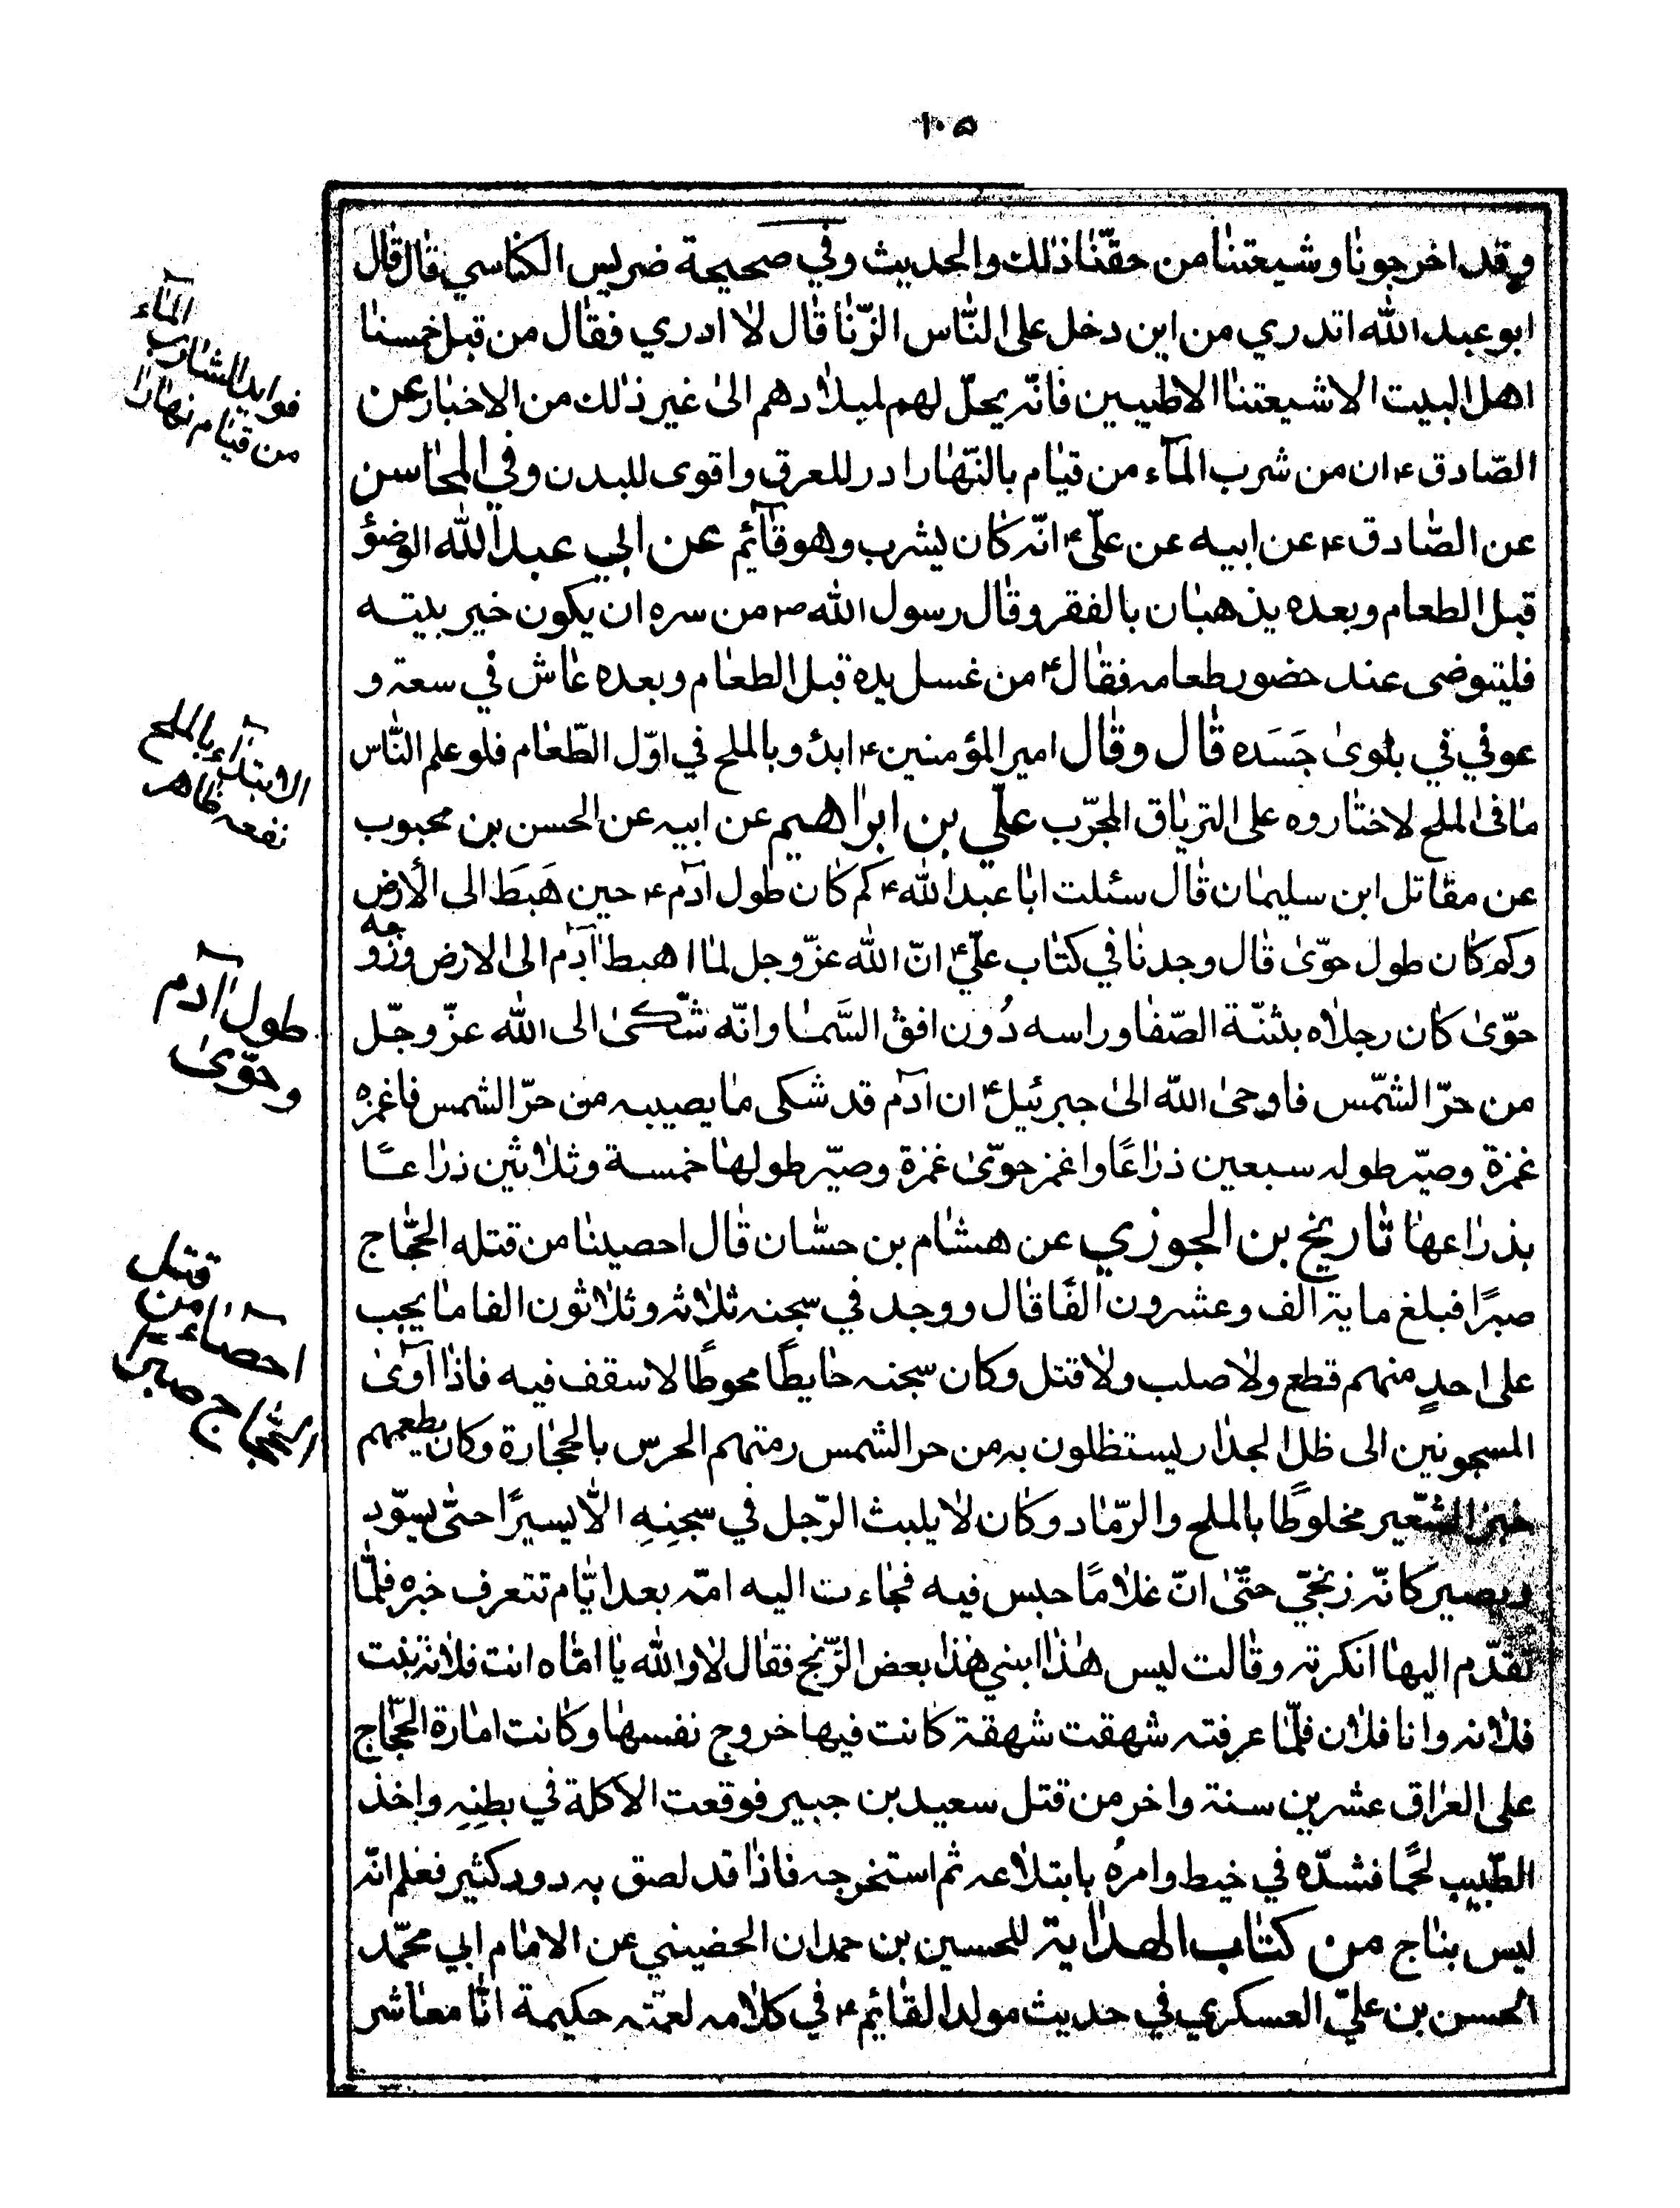 ١٠٥
وقد اخرجونا وشيعتنا من حقّنا ذلك والحديث وفي صحيحة ضريس الكناسي قال قال
ابو عبد الله اتدري من اين دخل على النّاس الزّنا قال لا ادري فقال من قبل خمسنا
اهل البيت الا شيعتنا الاطيبين فانّه يحلّ لهم لميلادهم الى غير ذلك من الاخبار عن
الصّادق ع ان من شرب المآء من قيام بالنّهار ادر للعرق واقوى للبدن وفي المحاسن
عن الصّادق ع عن ابيه عن علّي ع انّه كان يشرب وهو قآئم عن ابي عبد الله الوضؤ
قبل الطعام وبعده يذهبان بالفقر وقال رسول الله ص من سره ان يكون خير بيته
فليتوضى عند حضور طعامه فقال ع من غسل يده قبل الطعام وبعده عاش في سعة و
عوفي في بلوىٰ جَسَده قال وقال امير المؤمنين ع ابدؤ بالملح في اوّل الطّعام فلو علم النّاس
ما فى الملح لاختاروه على الترياق المجرّب علّي بن ابراهيم عن ابيه عن الحسن بن محبوب
عن مقاتل ابن سليمان قال سئلت ابا عبد الله ع كم كان طول ادٓم ع حين هَبَطَ الى الأرض
وكم كان طول حوّىٰ قال وجدنا في كتاب علّي ع انّ الله عزّ وجل لما اهبط ادٓم الى الارض وزوجه
حوّىٰ كان رجلاه بثنّة الصّفا وراسه دُون افق السَّما وانّه شكىٰ الى الله عزّ وجّل
من حرّ الشمّس فاوحىٰ اللّه الىٰ جبرئيل ع ان ادٓم قد شكى ما يصيبه من حرّ الشمس فاغمزه
غمزة وصيّر طوله سبعين ذراعًا واغمز حوّىٰ غمزة وصيّر طولها خمسة وثلاثين ذراعًا
بذراعها تاريخ بن الجوزي عن هشام بن حسّان قال احصينا من قتله الحجّاج
صبرًا فبلغ ماية الف وعشرون الفًا قال ووجد في سجنه ثلاثه وثلاثون الفا ما يجب
على احدٍ منهم قطع ولا صلب ولا قتل وكان سجنه حايطًا محوطًا لا سقف فيه فاذا آوىٰ
المسجونين الى ظل الجدار يستظلون به من حر الشمس رمتهم الحرس بالحجارة وكان يطعمهم
خبز الشّعير مخلوطًا بالملح والرّماد وكان لا يلبث الرّجل في سجنِهِ الّا يسيرًا حتّى يسوّد
ويصير كانّه زنجّي حتّىٰ انّ غلامًا حبس فيه فجاءت اليه امّه بعد ايّام تتعرف خبره فلمّا
تقدّم اليها انكرته وقالت ليس هٰذا ابني هٰذا بعض الزّنج فقال لا والله يا امّاه انت فلانة بنت
فلانه وانا فلان فلّما عرفته شهقت شهقة كانت فيها خروج نفسها وكانت امارة الحجّاج
على العراق عشرين سنة واخر من قتل سعيد بن جبير فوقعت الاكلة في بطنِهِ واخذ
الطّبيب لحمًا فشدّه في خيط وامرُه بابتلاعه ثم استخرجه فاذا قد لصق به دود كثير فعلم انّه
ليس بناج من كتاب الهداية للحسين بن حمدان الحضيني عن الامام ابي محمّد
الحسن بن علّي العسكري في حديث مولد القائيم ع في كلامه لعمّته حكيمة انّا معاشر
فوايد لشارب المآء
من قيام نهارا
الابتدآء بالملح
نفعه ظاهر
طول آدم
وحوّىٰ
احصآء من قتل
الحجّاج صبرًا